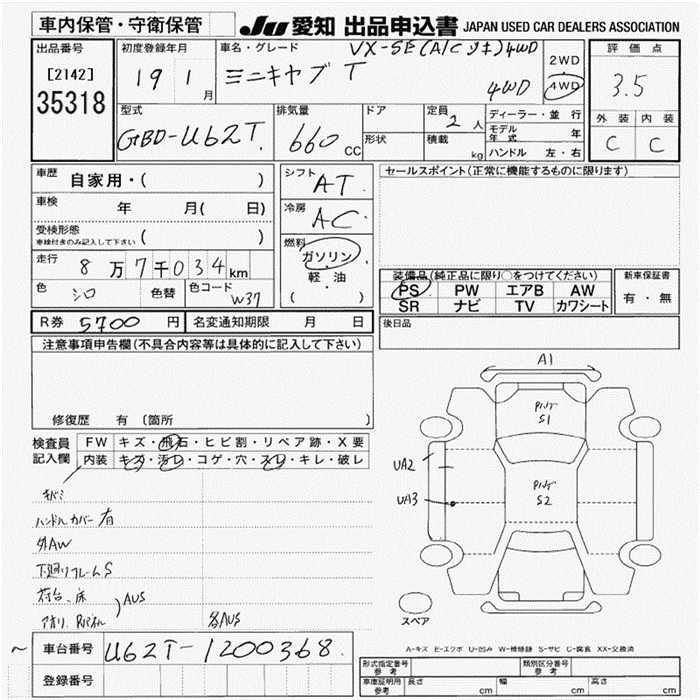 車内保管・守衛保管
JU 愛知 出品申込書 JAPAN USED CAR DEALERS ASSOCIATION
出品番号
[2142]
35318
初度登録年月
19 1 月
車名・グレード
VX-SE(A/Cツキ)4WD
ミニキャブ T
4WD
2WD
4WD
評価点
3.5
外装 内装
C C
型式
GBD-U62T.
排気量
660 CC
ドア
形状
定員
2 人
積載
kg
ディーラー・並行
モデル年式 年
ハンドル 左・右
車歴
自家用・( )
車検
年 月( 日)
受検形態
車検付きのみ記入して下さい ( )
走行
8万7千034km
色
シロ
色替
色コード
W37
シフト
AT.
冷房
AC.
燃料
ガソリン
軽・油
( )
セールスポイント(正常に機能するものに限ります)
装備品(純正品に限り○をつけてください)
PS PW エアB AW
SR ナビ TV カワシート
新車保証書
有・無
R券 5700 円
名変通知期限 月 日
後日品
注意事項申告欄(不具合内容等は具体的に記入して下さい)
修復歴 有 〔箇所 〕
検査員
記入欄
FW キズ・飛石・ヒビ割・リペア跡・X要
内装 キズ・汚レ・コゲ・穴・スレ・キレ・破レ
キバミ
ハンドルカバー有
外AW
下廻りフレームS
荷台、床
アオリ、Rパネル
AUS
各AUS
A1
PNT
S1
UA2
PNT
S2
UA3
スペア
A-キズ E-エクボ U-凹み W-補修跡 S-サビ C-腐食 XX-交換済
~
車台番号
U62T-1200368.
登録番号
形式指定番号
参考
類別区分番号
参考
車庫証明用
参考
長さ cm
幅 cm
高さ cm